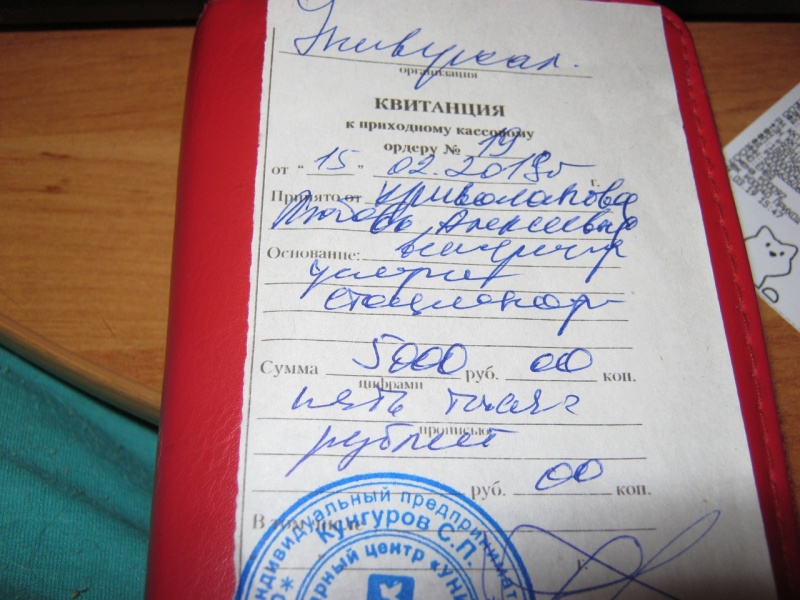 Универсал.
организация
КВИТАНЦИЯ
к приходному кассовому
ордеру № 19
от "15" 02.2019г г.
Принято от Криволапова
Любовь Алексеевна
Основание: ветеринар
услуги
стационар
Сумма 5000 руб. 00 коп.
цифрами
пять тысяч
прописью
рублей
руб. 00 коп.
В том числе
г.
индивидуальный предпринимат
Кунгуров С.П.
арный центр «Уни